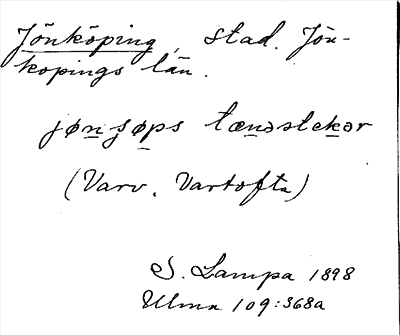 Jönköping, stad. Jön-
köpings län.
jøn ʃøps tændstekər
(Varv, Vartofta)
S. Lampa 1898
Ulma 109:368a